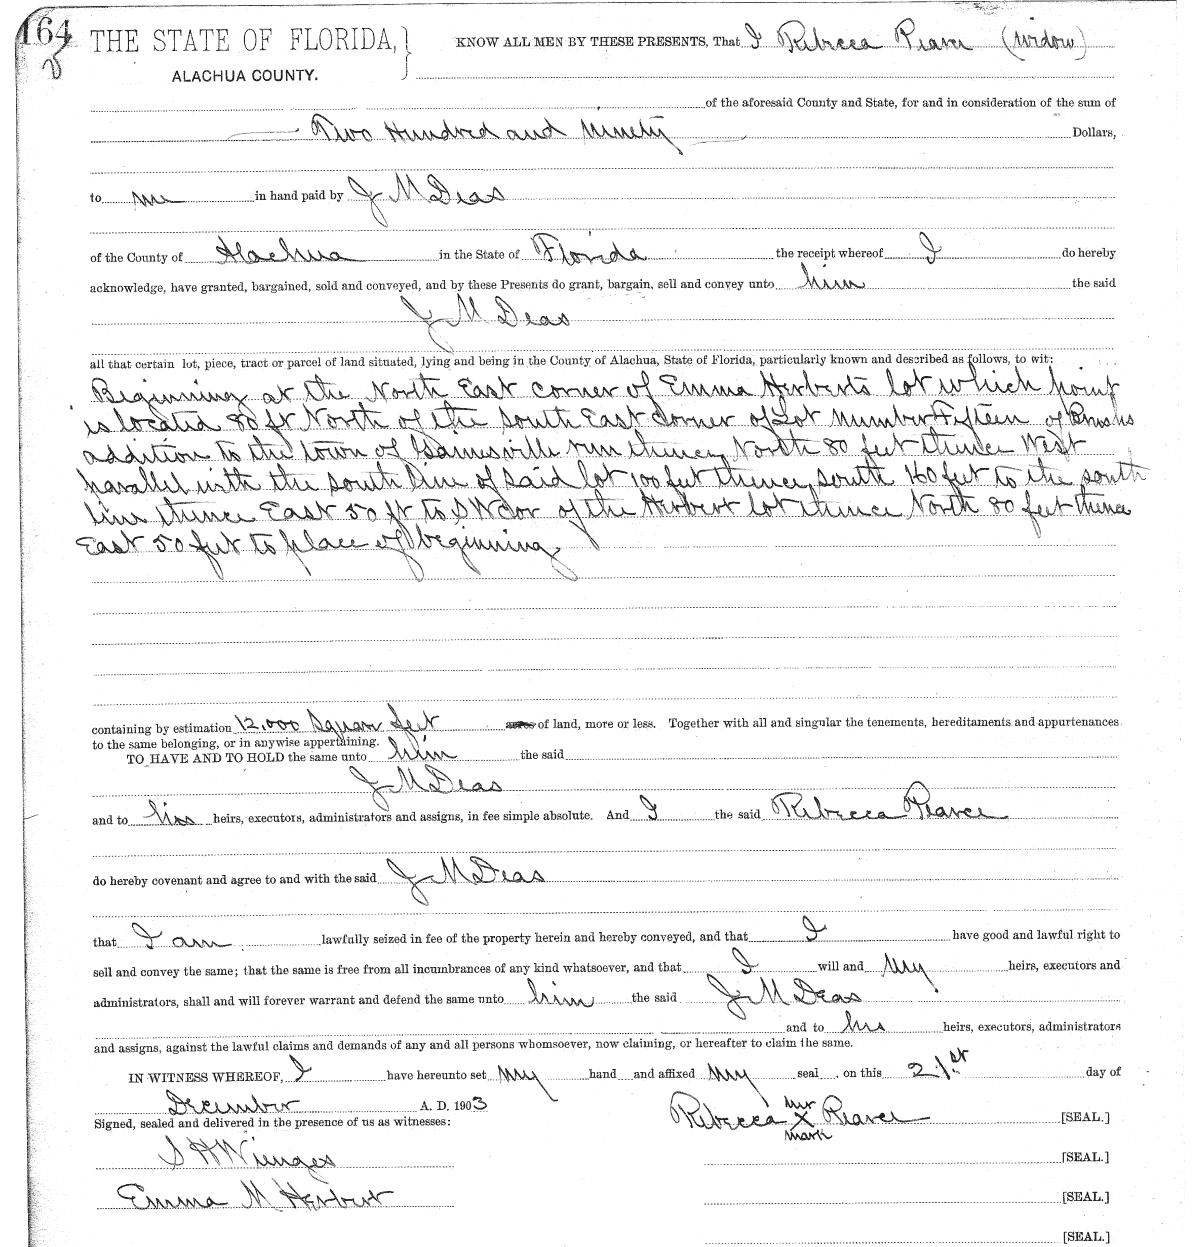 164
THE STATE OF FLORIDA, KNOW ALL MEN BY THESE PRESENTS, That I Rebecca Pearce (widow)
ALACHUA COUNTY.
of the aforesaid County and State, for and in consideration of the sum of
Two Hundred and Ninety Dollars,
to me in hand paid by J M Deas
of the County of Alachua in the State of Florida the receipt whereof I do hereby
acknowledge, have granted, bargained, sold and conveyed, and by these Presents do grant, bargain, sell and convey unto him the said
J M Deas
all that certain lot, piece, tract or parcel of land situated, lying and being in the County of Alachua, State of Florida, particularly known and described as follows, to wit:
Beginning at the North East corner of Emma Herberts lot which point
is located 80 ft North of the South East corner of Lot Number Fifteen of
addition to the town of Gainesville run thence North 80 feet thence West
parallel with the south line of said lot 100 feet thence south 160 feet to the south
line thence East 50 ft to SW cor of the Herbert lot thence North 80 feet thence
East 50 feet to place of beginning
containing by estimation 12,000 Square feet acres of land, more or less. Together with all and singular the tenements, hereditaments and appurtenances
to the same belonging, or in anywise appertaining.
TO HAVE AND TO HOLD the same unto him the said
J M Deas
and to his heirs, executors, administrators and assigns, in fee simple absolute. And I the said Rebecca Pearce
do hereby covenant and agree to and with the said J M Deas
that I am lawfully seized in fee of the property herein and hereby conveyed, and that I have good and lawful right to
sell and convey the same; that the same is free from all incumbrances of any kind whatsoever, and that I will and my heirs, executors and
administrators, shall and will forever warrant and defend the same unto him the said J M Deas
and to his heirs, executors, administrators
and assigns, against the lawful claims and demands of any and all persons whomsoever, now claiming, or hereafter to claim the same.
IN WITNESS WHEREOF, I have hereunto set my hand and affixed my seal, on this 21st day of
December A. D. 1903
Rebecca her X mark Pearce [SEAL.]
Signed, sealed and delivered in the presence of us as witnesses:
S H Wienges [SEAL.]
Emma M Herbert [SEAL.]
[SEAL.]